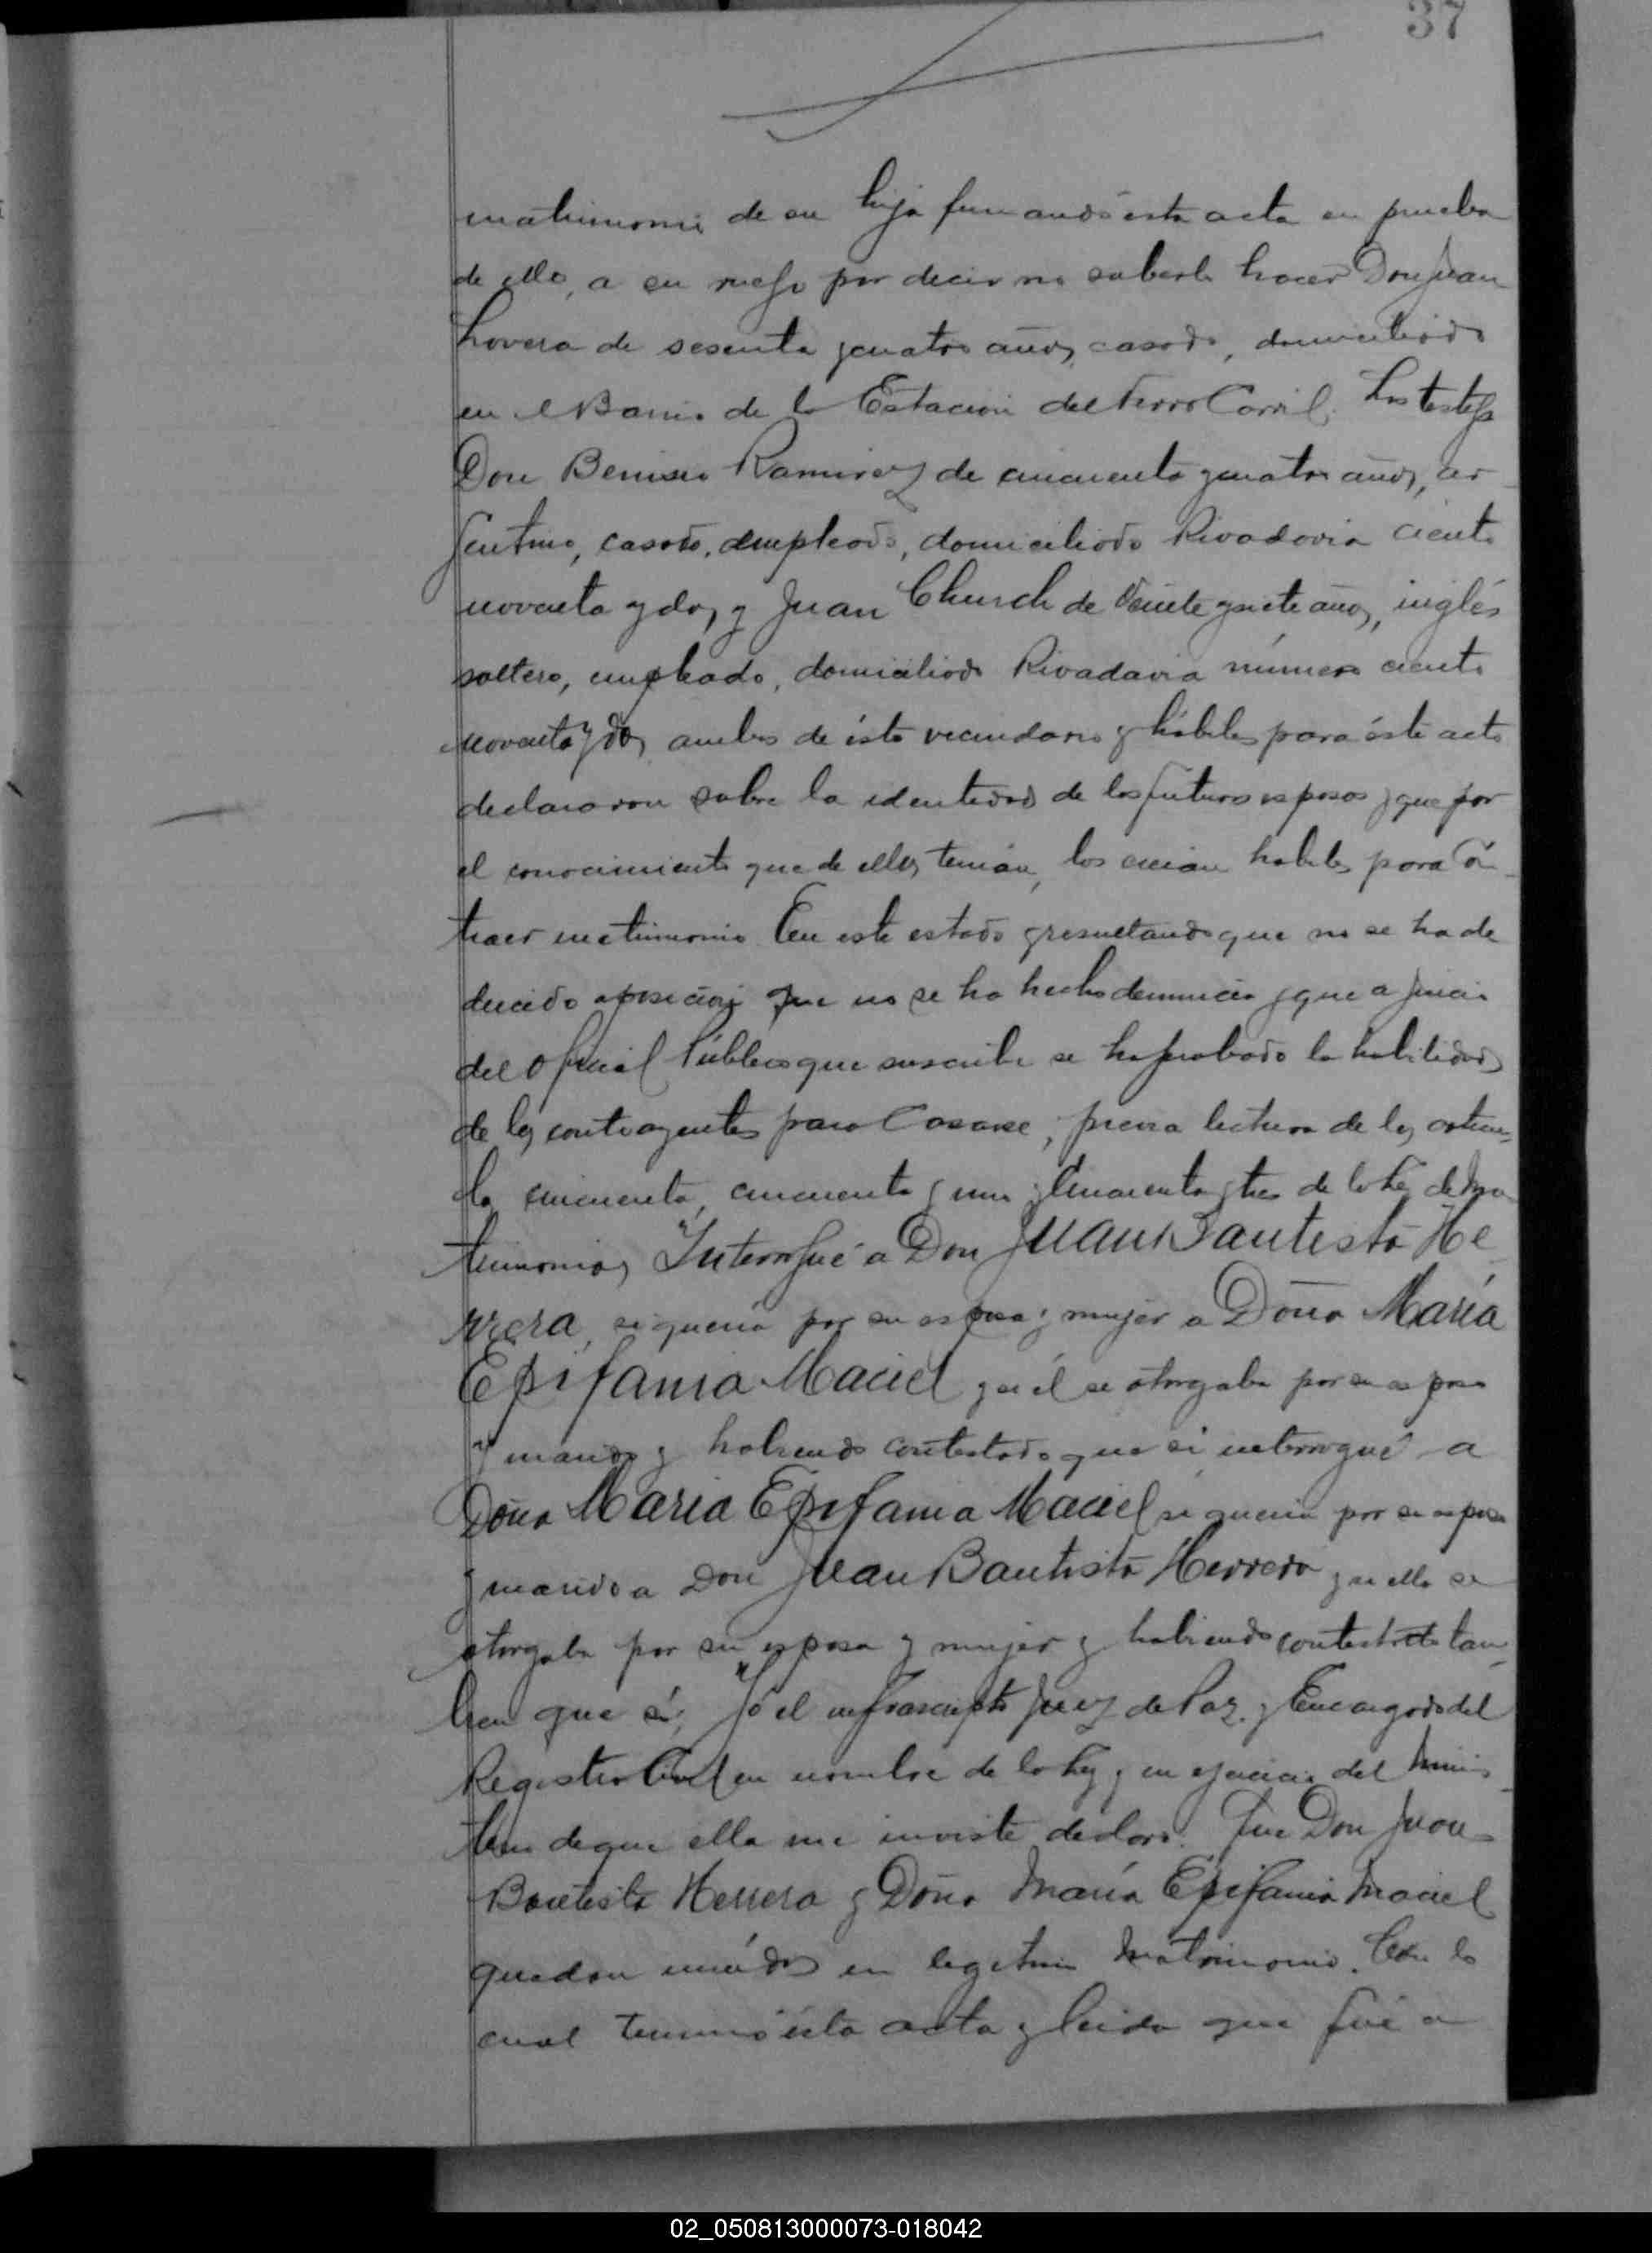 37
matrimonio de su hija firmando ésta acta en prueba
de ello, a su ruego por decir no saberlo hacer Don Juan
Lovera de sesenta y cuatro años, casado, domiciliado
en el Barrio de la Estación del Ferro Carril. Los testigos
Don Benisio Ramirez de cincuenta y cuatro años, ar-
gentino, casado, empleado, domiciliado Rivadavia ciento
noventa y dos, y Juan Church de veinte y siete años, inglés
soltero, empleado, domiciliado Rivadavia número ciento
noventa y dos, ambos de ésta vecindario y hábiles para éste acto
declararon sobre la identidad de los futuros esposos y que por
el conocimiento que de ellos tenian, los creian habiles para con-
traer matrimonio En este estado y resultando que no se ha de
ducido oposicion que no se ha hecho denuncia y que a juicio
del Oficial Público que suscribe se ha probado la habilidad
de los contrayentes para Casarse, previa lectura de los articu-
los cincuenta, cincuenta y uno y Cincuenta y tres de la Ley de Ma
trimonio, Interrogué a Don Juan Bautista He
rrera, si queria por su esposa y mujer a Doña María
Epifania Maciel y si él se otorgaba por su esposo
y marido y habiendo contestado que si interrogué a
Doña Maria Epifania Maciel si queria por su esposo
y marido a Don Juan Bautista Herrera y si ella se
otorgaba por su esposa y mujer y habiendo contestado tam
bien que sí; Yo el infrascripto Juez de Paz y Encargado del
Registro Civil en nombre de la Ley y en ejercicio del Minis-
terio de que ella me inviste declaro. Que Don Juan
Bautista Herrera y Doña María Epifania Maciel
quedan unidos en legitimo Matrimonio. Con lo
cual terminó ésta acta y leida que fué a
02_050813000073-018042